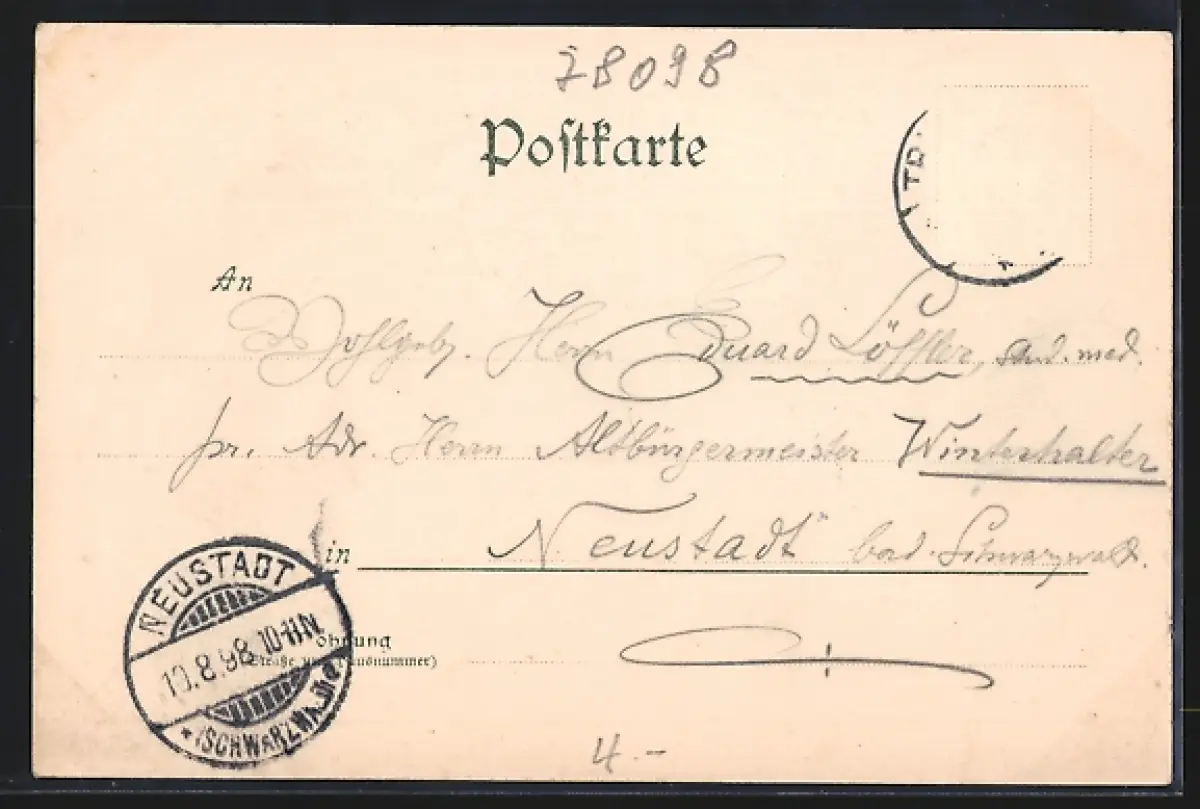 78098
Postkarte
An
Wohlgeb. Herrn Eduard Löffler, cand. med.
pr. Adr. Herrn Altbürgermeister Winterhalter
in Neustadt bad. Schwarzwald.
NEUSTADT
10.8.98.10-11N
* (SCHWARZWALD)
ohnung
(Straße und Hausnummer)
4.-